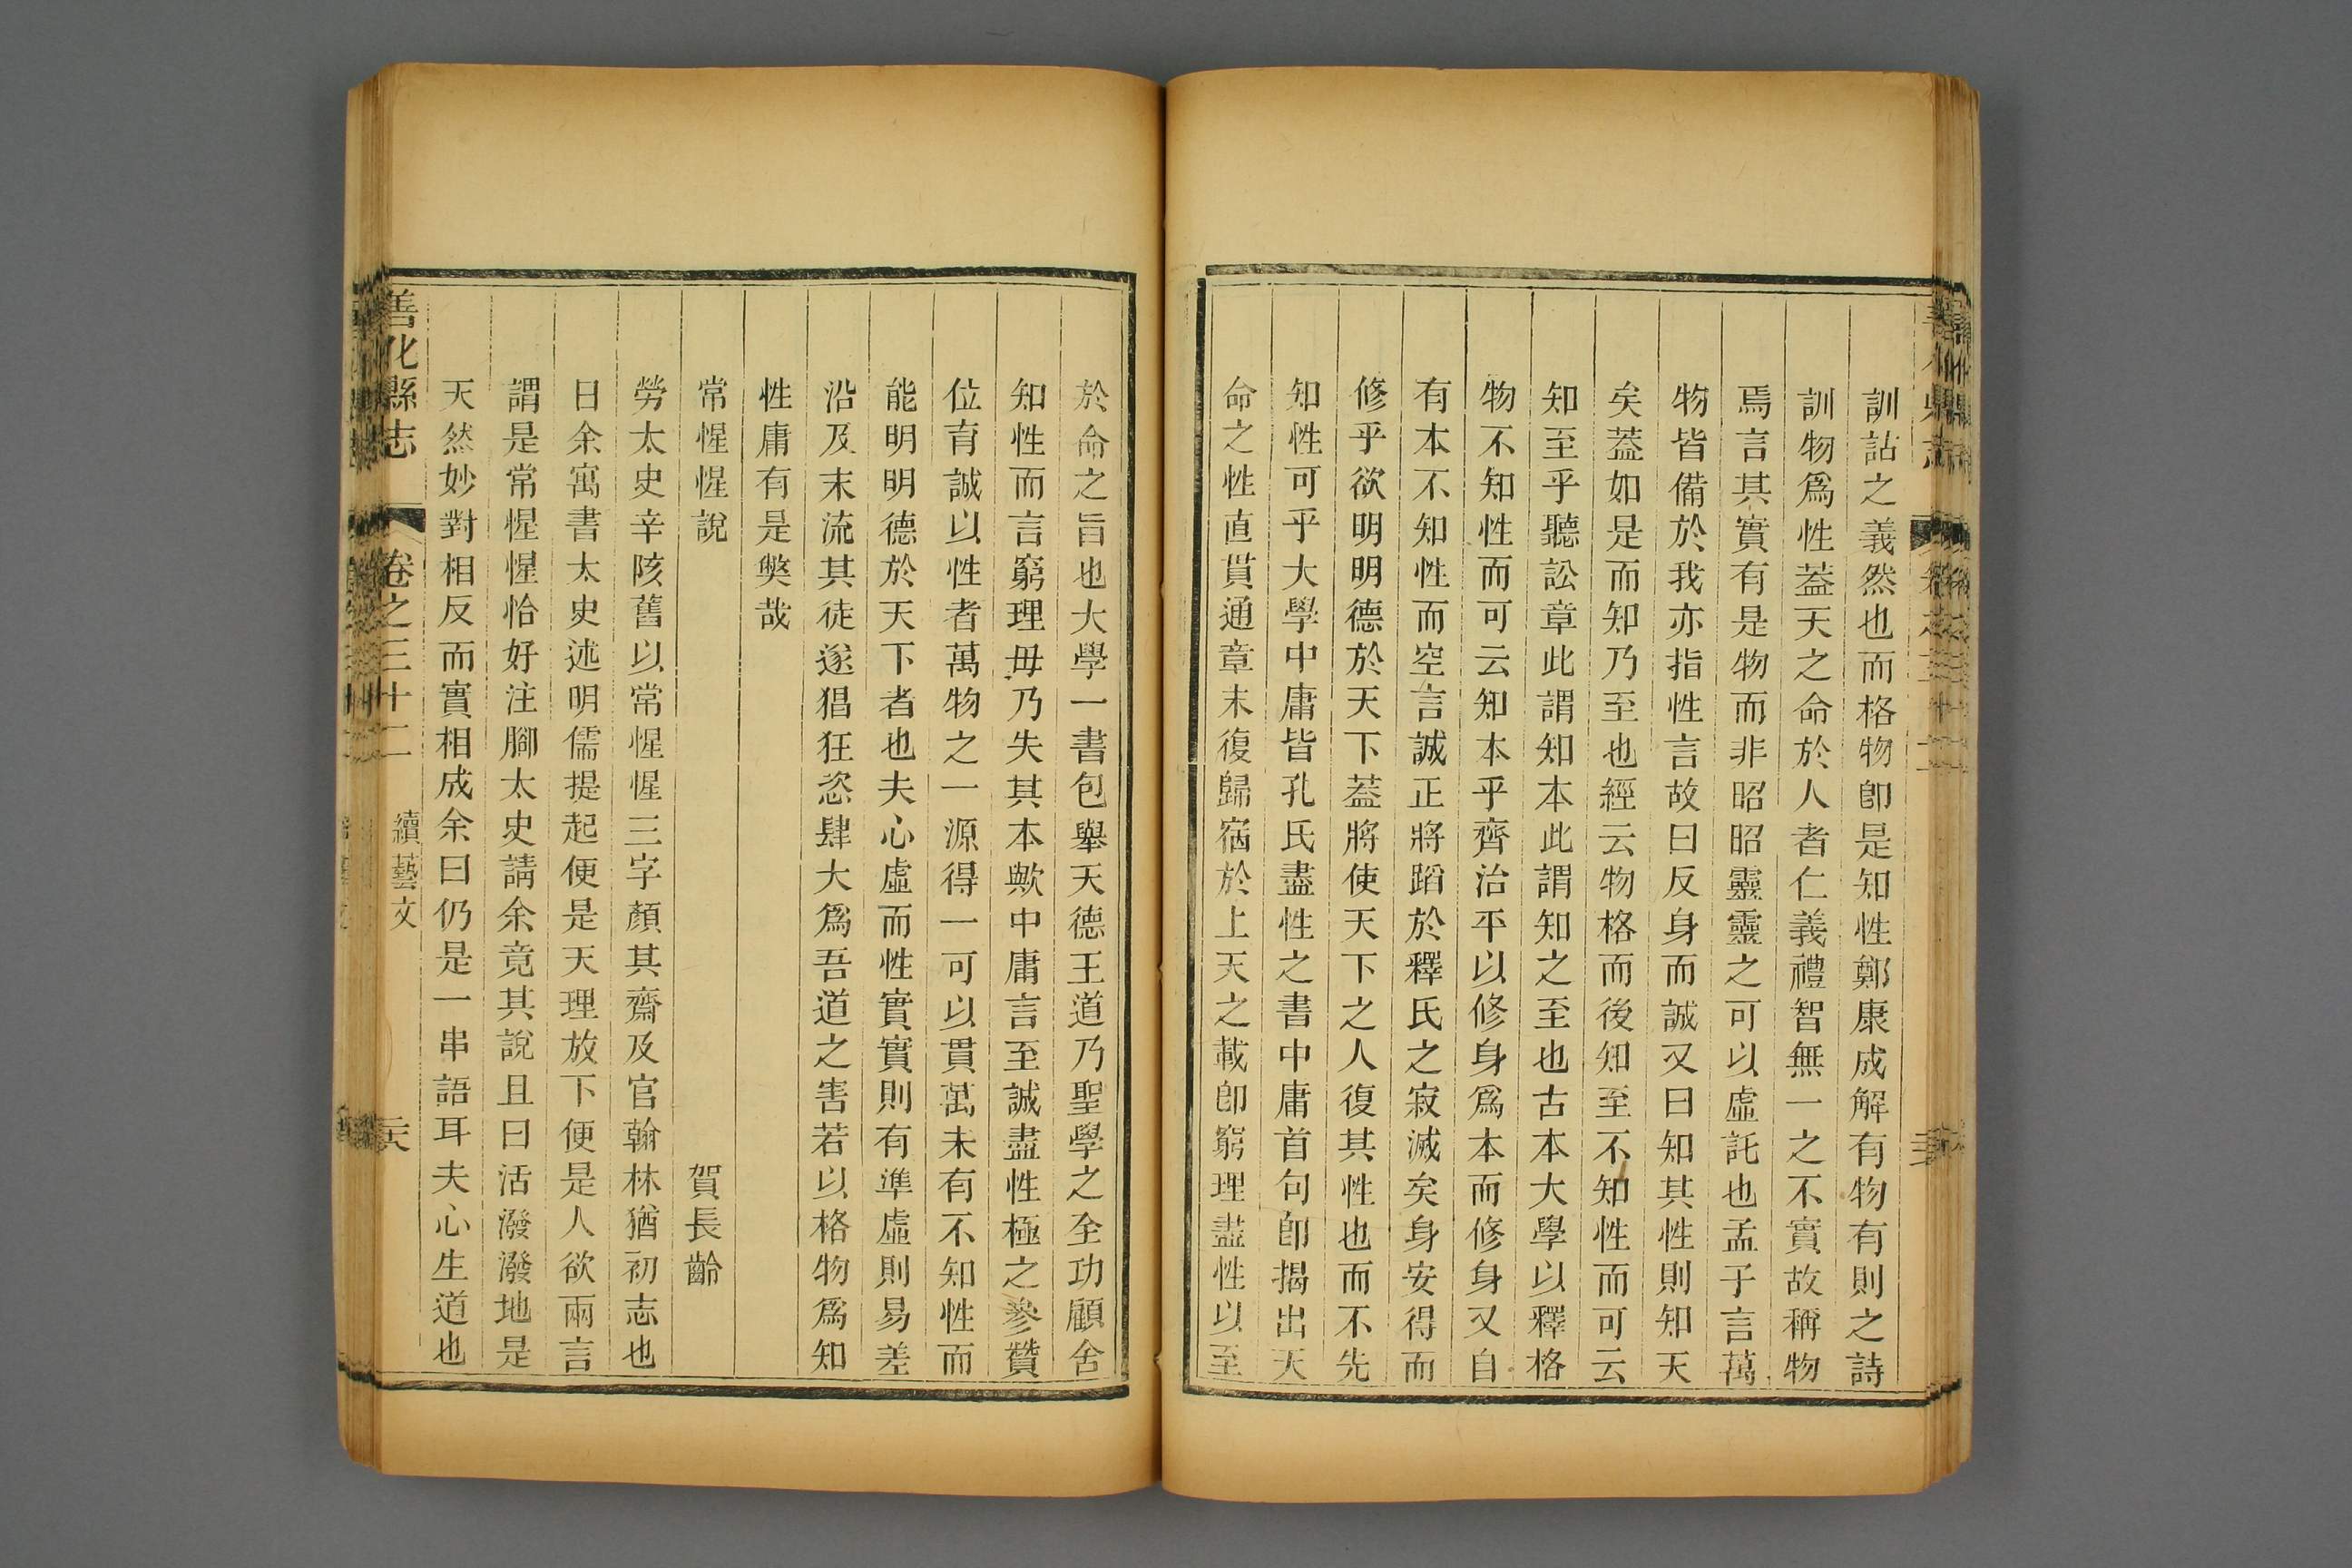 訓詁之義然也而格物卽是知性鄭康成解有物有則之詩
訓物爲性蓋天之命於人者仁義禮智無一之不實故稱物
焉言其實有是物而非昭昭靈靈之可以虛託也孟子言萬
物皆備於我亦指性言故曰反身而誠又曰知其性則知天
矣蓋如是而知乃至也經云物格而後知至不知性而可云
知至乎聽訟章此謂知本此謂知之至也古本大學以釋格
物不知性而可云知本乎齊治平以修身爲本而修身又自
有本不知性而空言誠正將蹈於釋氏之寂滅矣身安得而
修乎欲明明德於天下蓋將使天下之人復其性也而不先
知性可乎大學中庸皆孔氏盡性之書中庸首句卽揭出天
命之性直貫通章末復歸宿於上天之載卽窮理盡性以至
於命之旨也大學一書包舉天德王道乃聖學之全功顧舍
知性而言窮理毋乃失其本歟中庸言至誠盡性極之參贊
位育誠以性者萬物之一源得一可以貫萬未有不知性而
能明明德於天下者也夫心虛而性實實則有準虛則易差
沿及末流其徒遂猖狂恣肆大爲吾道之害若以格物爲知
性庸有是獘哉
常惺惺說
賀長齡
勞太史辛陔舊以常惺惺三字顏其齋及官翰林猶初志也
日余寓書太史述明儒提起便是天理放下便是人欲兩言
謂是常惺惺恰好注腳太史請余竟其說且曰活潑潑地是
天然妙對相反而實相成余曰仍是一串語耳夫心生道也
善化縣志
卷之三十二
續藝文